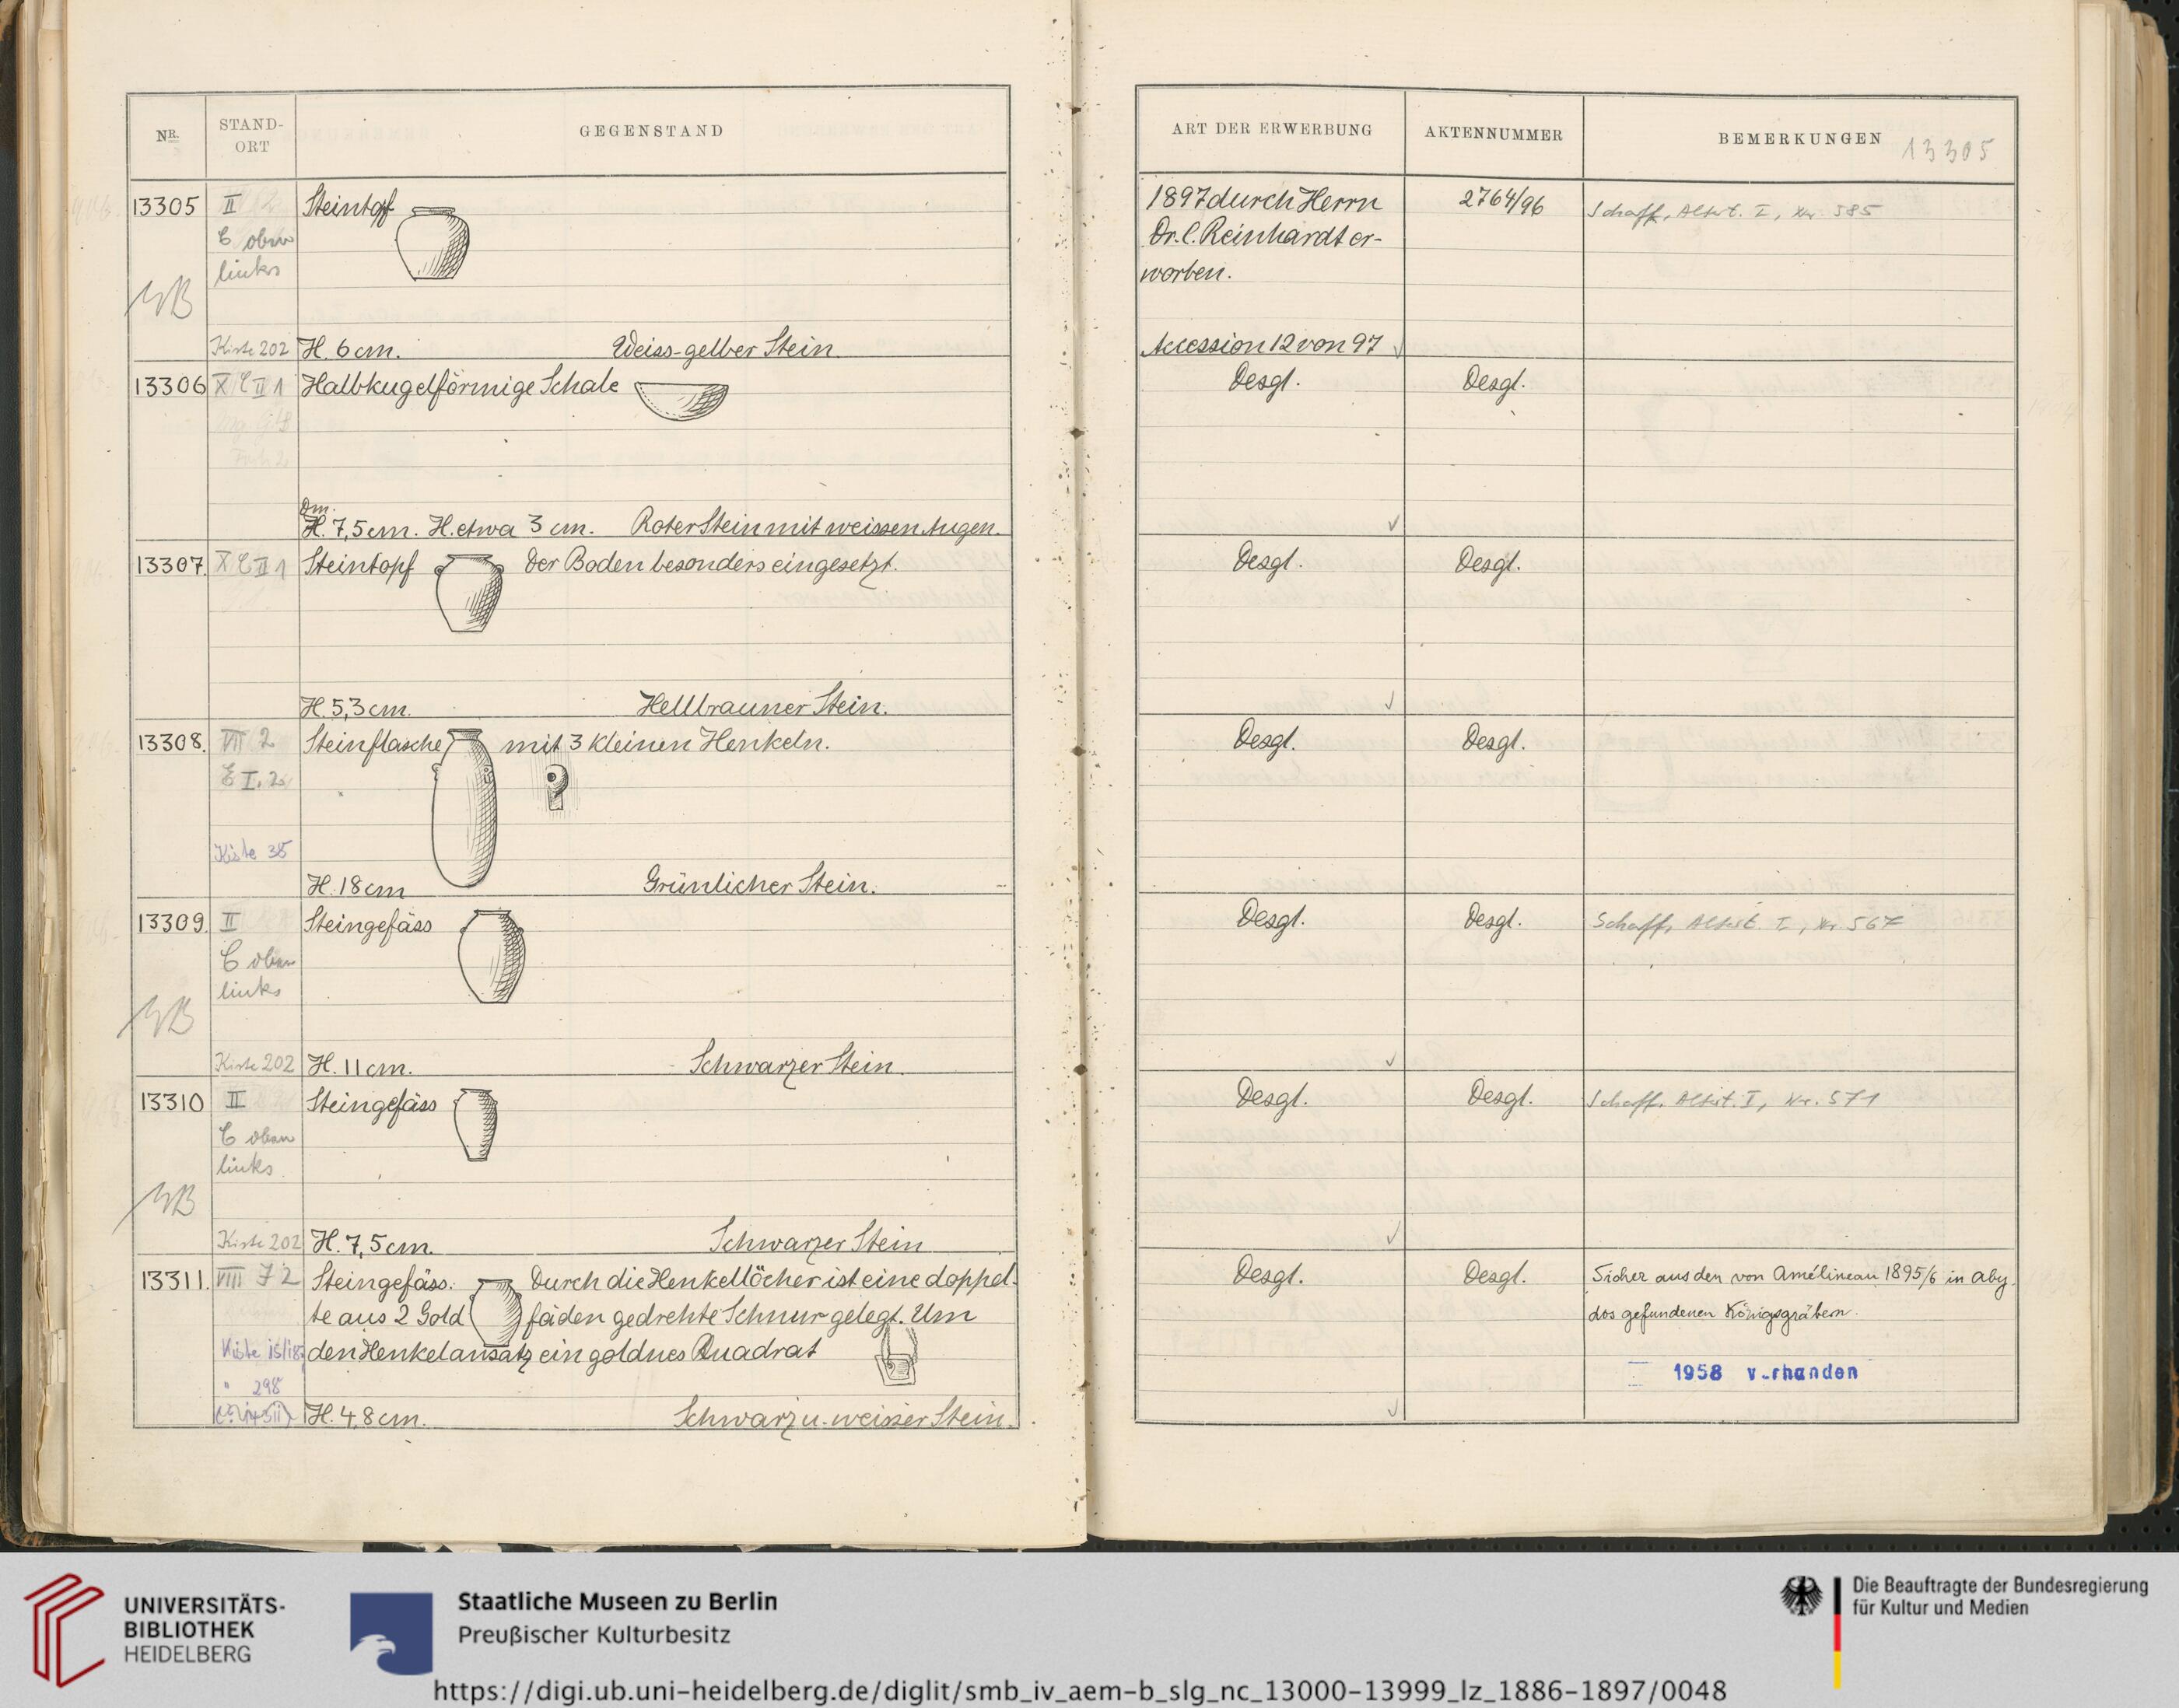 NR.
STAND-
ORT
GEGENSTAND
13305
II
C oben
links
Steintopf
Kiste 202
H. 6 cm.
Weiss-gelber Stein
13306
X C II 1
Halbkugelförmige Schale
Dm.
H. 7,5 cm. H. etwa 3 cm. Roter Stein mit weissen Augen.
13307.
X C II 1
Steintopf
Der Boden besonders eingesetzt.
H. 5,3 cm.
Hellbrauner Stein.
13308.
VII 2
Steinflasche mit 3 kleinen Henkeln.
E I. 2.
Kiste 38
H. 18 cm
Grünlicher Stein.
13309.
II
Steingefäss
C oben
links
Kiste 202
H. 11 cm.
Schwarzer Stein.
13310
II
Steingefäss
C oben
links.
Kiste 202
H. 7,5 cm.
Schwarzer Stein
13311.
VIII J 2
Steingefäss. Durch die Henkellöcher ist eine doppel-
te aus 2 Goldfäden gedrehte Schnur gelegt. Um
den Henkelansatz ein goldnes Quadrat
Kiste
" 298
H. 4,8 cm.
Schwarz u. weisser Stein.
ART DER ERWERBUNG
AKTENNUMMER
BEMERKUNGEN
13305
1897 durch Herrn
Dr. C. Reinhardt er-
worben.
2764/96
Scharff, Altert. I, Nr. 585
Accession 12 von 97
Desgl. Desgl.
Desgl. Desgl.
Desgl. Desgl.
Desgl. Desgl. Scharff, Altert. I, Nr. 567
Desgl. Desgl. Scharff, Altert. I, Nr. 571
Desgl. Desgl. Sicher aus den von Amélineau 1895/6 in Aby
dos gefundenen Königsgräbern.
1958 v.rhanden
UNIVERSITÄTS-
BIBLIOTHEK
HEIDELBERG
Staatliche Museen zu Berlin
Preußischer Kulturbesitz
Die Beauftragte der Bundesregierung
für Kultur und Medien
https://digi.ub.uni-heidelberg.de/diglit/smb_iv_aem-b_slg_nc_13000-13999_lz_1886-1897/0048